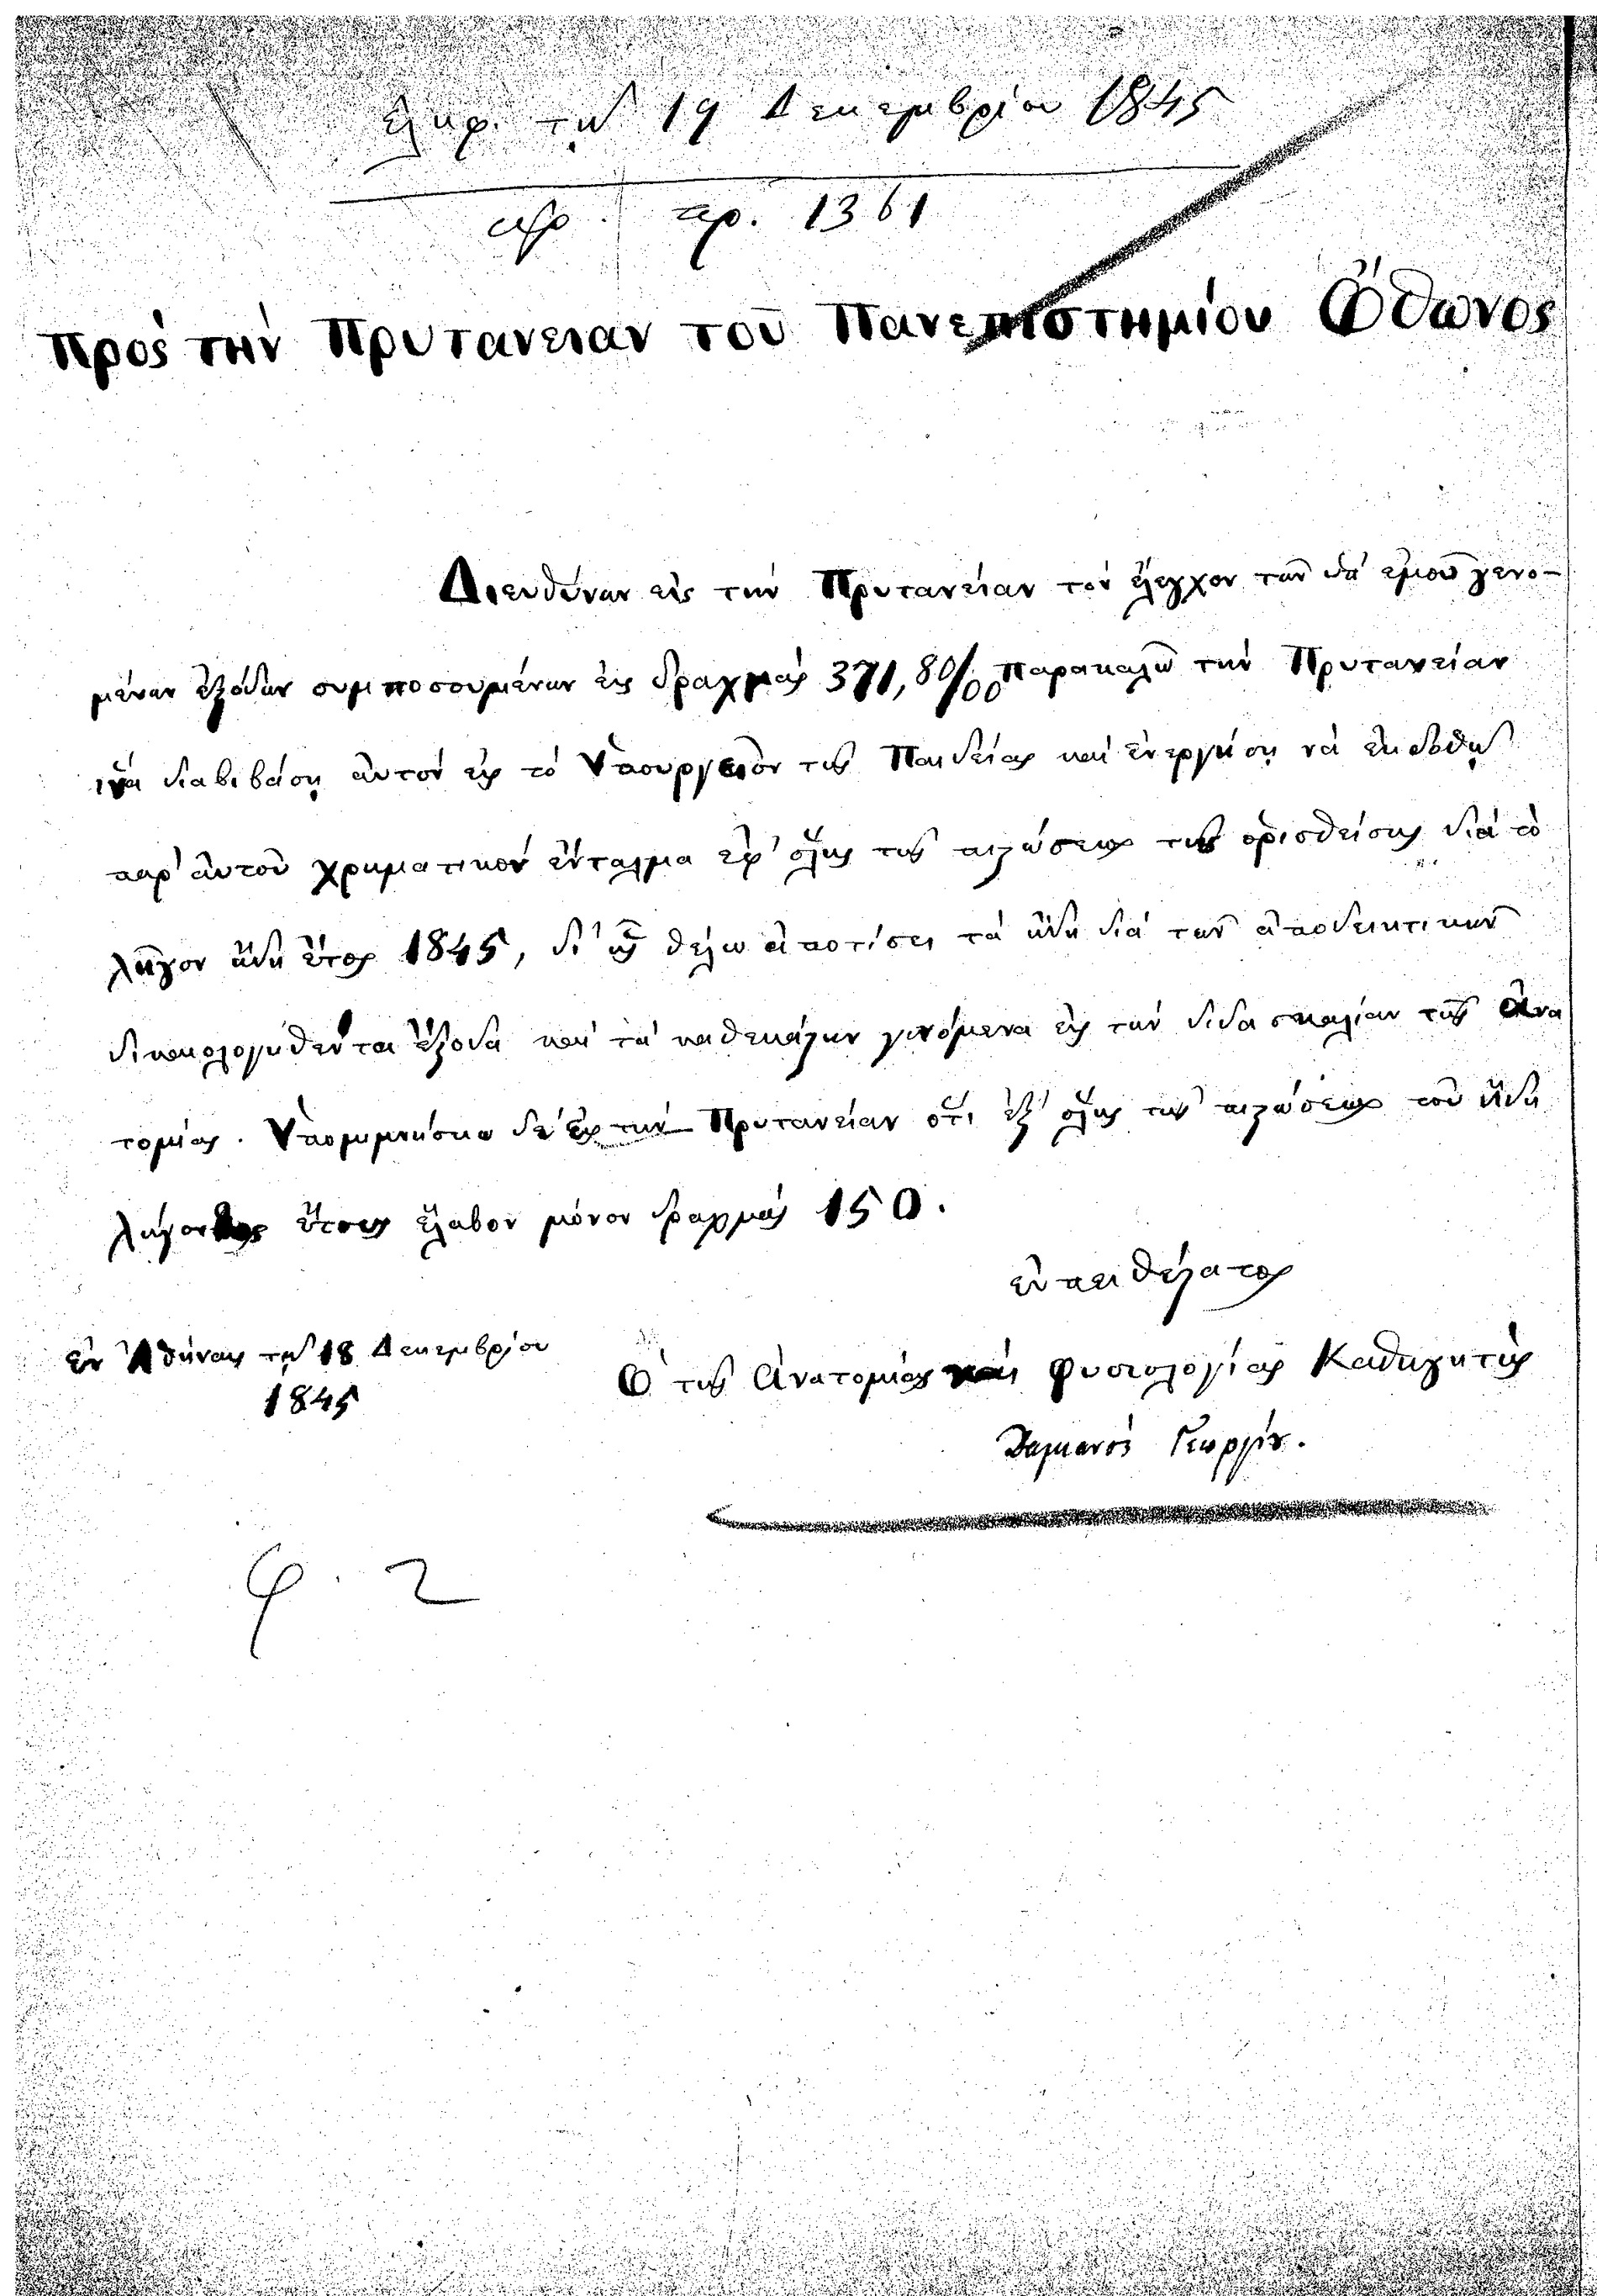 ἐλήφ. τῇ 19 Δεκεμβρίου 1845
ἀρ. πρ. 1361
Πρός τήν Πρυτανειαν τοῦ Πανεπιστημίου Ὄθωνος
Διευθύνων εἰς τήν Πρυτανείαν τόν ἔλεγχον τῶν ὑπ' ἐμοῦ γενο-
μένων ἐξόδων συμποσουμένων εἰς δραχμάς 371,80/00 παρακαλῶ τήν Πρυτανείαν
ἵνα διαβιβάσῃ αὐτόν εἰς τό Ὑπουργεῖον τῆς Παιδείας καί ἐνεργήσῃ νά ἐκδοθῇ
παρ' αὐτοῦ χρηματικόν ἔνταλμα ἐφ' ὅλης τῆς πιστώσεως τῆς ὁρισθείσης διά τό
λῆγον ἤδη ἔτος 1845, δι' ἧς θέλω ἀποτίσει τά ἤδη διά τῶν ἀποδεικτικῶν
δικαιολογηθέντα ἔξοδα καί τά καθεκάστην γινόμενα εἰς τήν διδασκαλίαν τῆς Ἀνα
τομίας. Ὑπομιμνήσκω δέ εἰς τήν Πρυτανείαν ὅτι ἐξ' ὅλης τῆς πιστώσεως τοῦ ἤδη
λήγοντος ἔτους ἔλαβον μόνον δραχμάς 150.
εὐπειθέστατος
Ἐν Ἀθήναις τῇ 18 Δεκεμβρίου
1845
Ὁ τῆς Ἀνατομίας καί Φυσιολογίας Καθηγητής
Δαμιανός Γεωργίου.
φ. 2